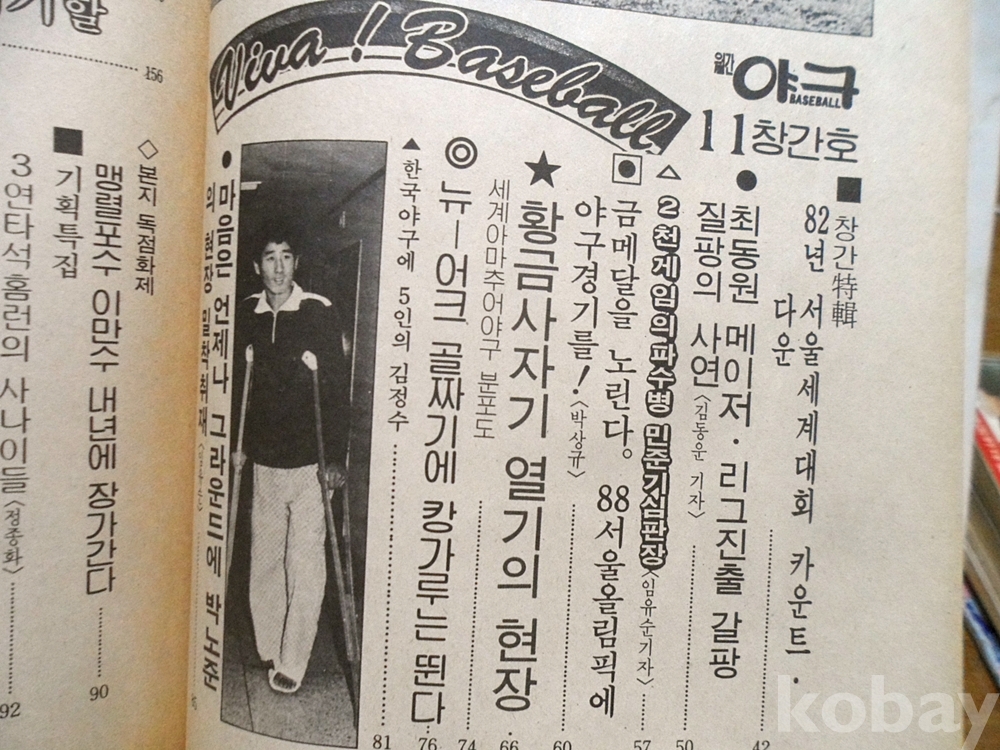 Viva! Baseball
월간 야구
BASEBALL
11 창간호
■ 창간特輯
82년 서울세계대회 카운트·
다운 42
● 최동원 메이저·리그진출 갈팡
질팡의 사연〈김동운 기자〉 50
△ 2천게임의파수병 민준기심판장〈임유순기자〉 57
▣ 금메달을 노린다. 88서울올림픽에
야구경기를!〈박상규〉 60
★ 황금사자기 열기의 현장 66
세계아마추어야구 분포도 74
◎ 뉴-어크 골짜기에 캉가루는 뛴다 76
▲ 한국야구에 5인의 김정수 81
● 마음은 언제나 그라운드에 박노준
의 현장 밀착취재
알
156
◇ 본지 독점화제
맹렬포수 이만수 내년에 장가간다 90
■ 기획특집
3연타석홈런의 사나이들〈정종화〉 92
kobay